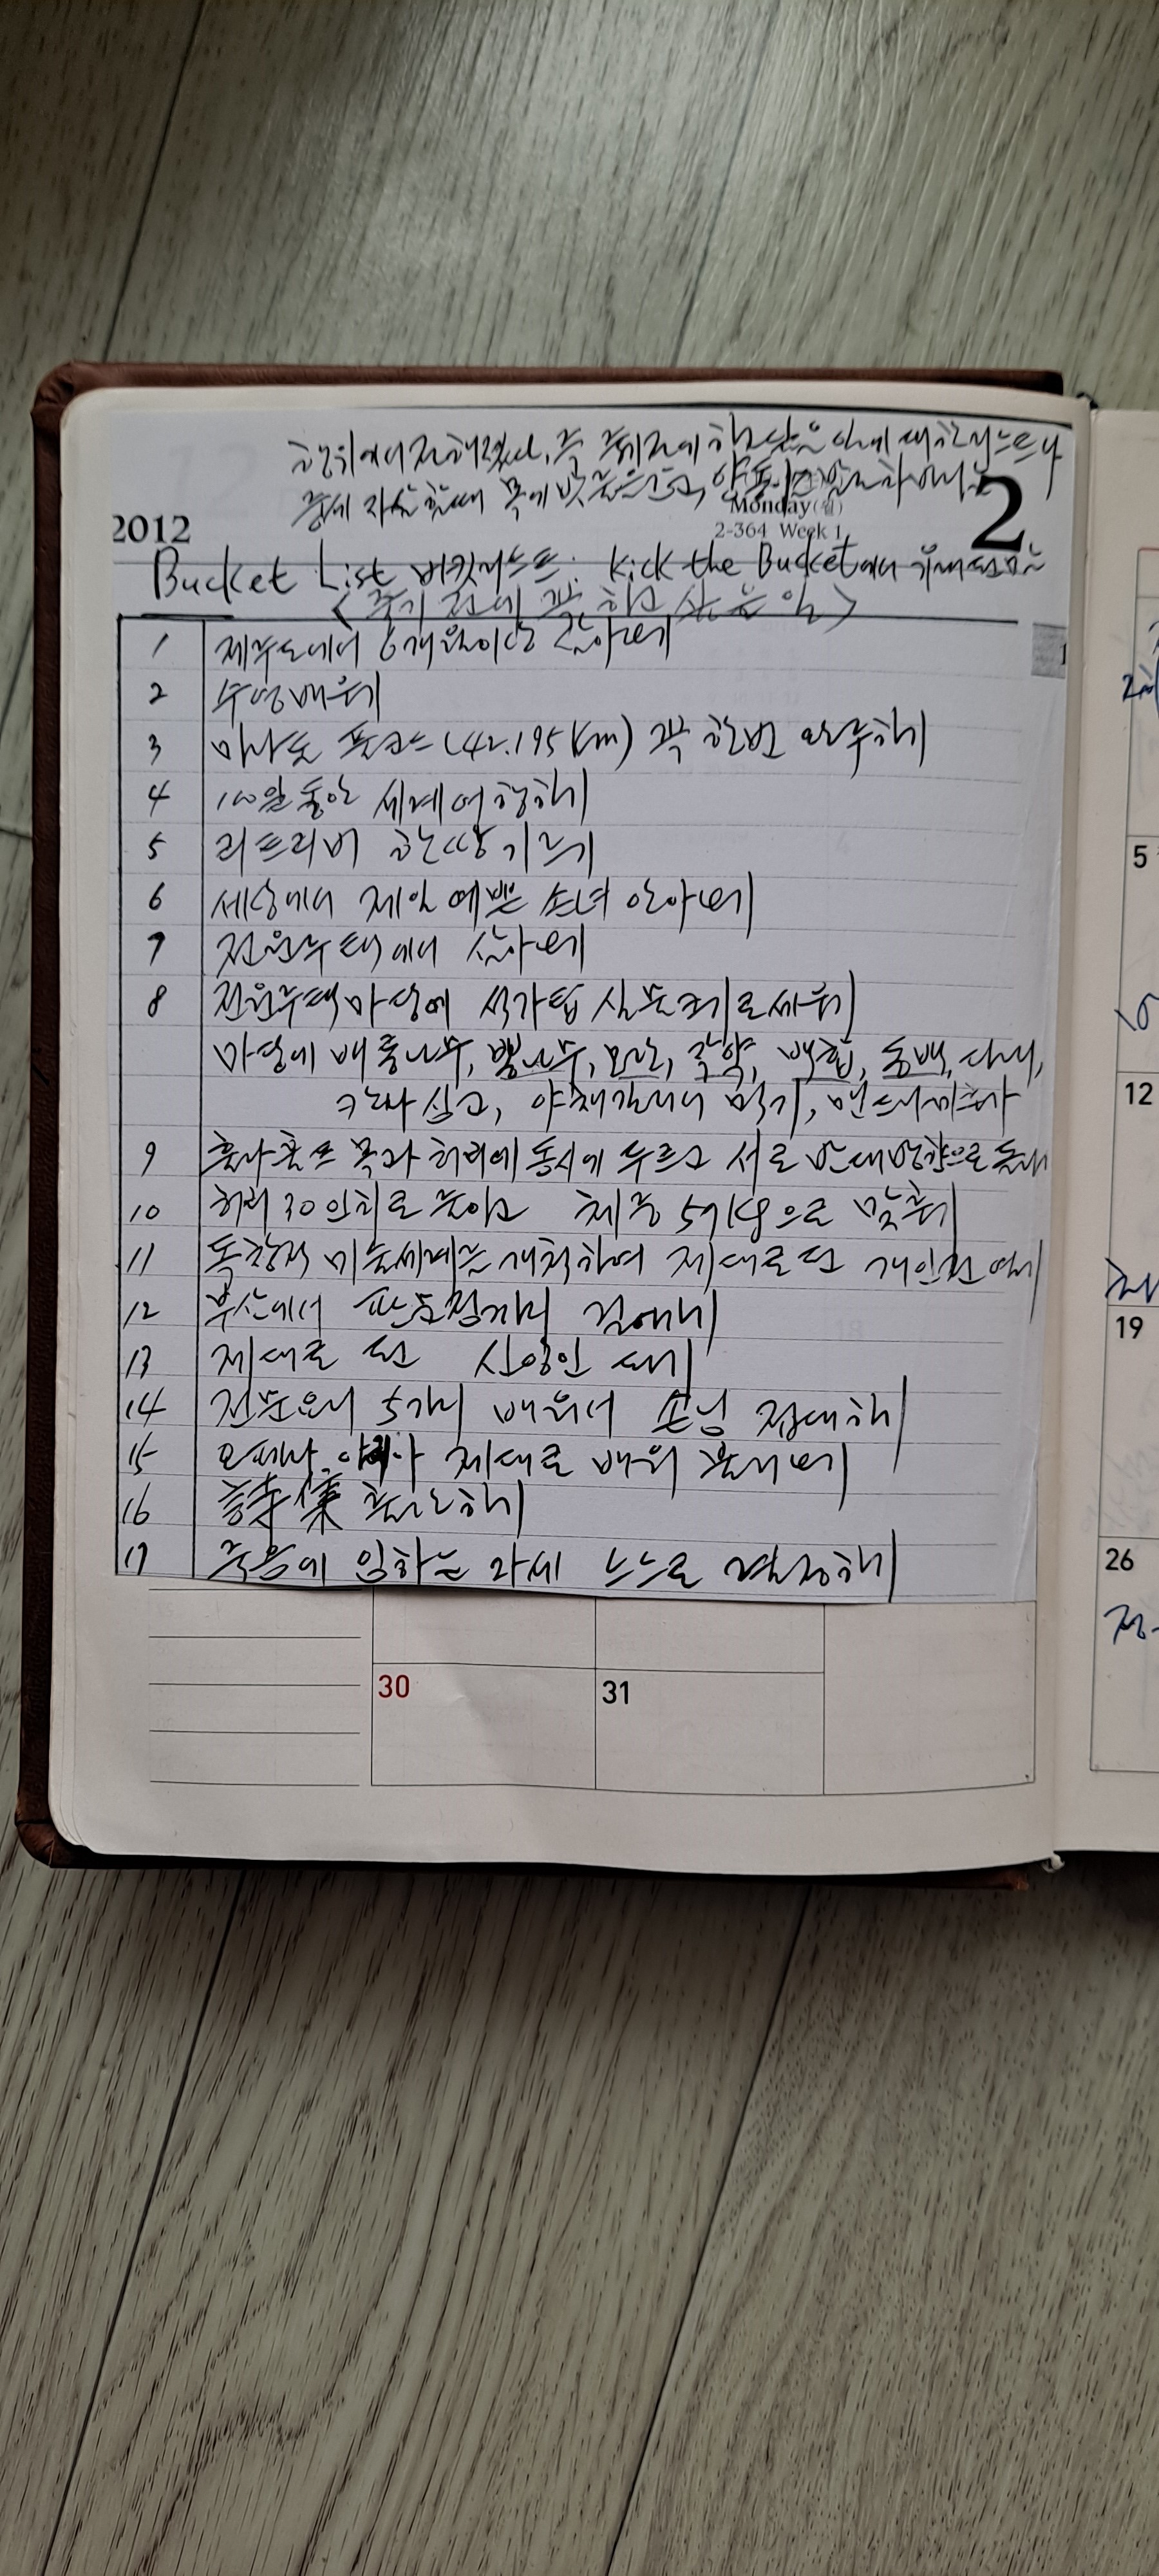 행위에서 전해졌다. 즉 죽기 전에 하고 싶은 일에 대한 리스트다
중세 자살할 때 목에 밧줄을
2012
Monday(월)
2-364 Week 1
2
Bucket List 버킷리스트: Kick the Bucket에서 유래된 말
<죽기 전에 꼭 하고 싶은 일>
1 제주도에서 6개월이상 살아보기
2 수영배우기
3 마라톤 풀코스(42.195Km) 꼭 한번 완주하기
4 100일 동안 세계여행하기
5 리트리버 한쌍 기르기
6 세상에서 제일 예쁜 손녀 안아보기
7 전원주택에서 살아보기
8 전원주택마당에 석가탑 실물크기로 세우기
마당에 배롱나무, 뽕나무, 모란, 작약, 백합, 동백, 다래,
심고, 야채 먹기, 맨드라미
9 훌라후프 목과 허리에 동시에 두르고 서로 반대방향으로 돌리기
10 허리 30인치로 줄이고 체중 57Kg으로 맞추기
11 독창적 미술세계를 개척하여 제대로 된 개인전 열기
12 부산에서 판문점까지 걸어가기
13 제대로 된 신앙인 되기
14 전문요리 5가지 배워서 손님 접대하기
15 오페라 아리아 제대로 배워 불러보기
16 詩集 출간하기
17 죽음에 임하는 자세 스스로 결정하기
30
31
5
12
19
26